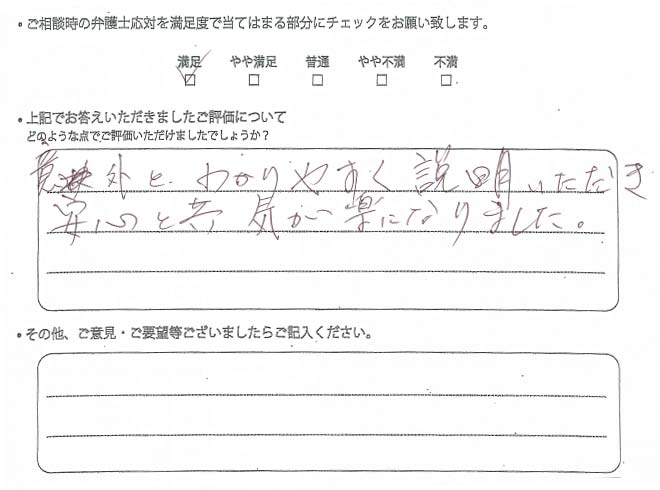 ・ご相談時の弁護士応対を満足度で当てはまる部分にチェックをお願い致します。
満足 やや満足 普通 やや不満 不満
・上記でお答えいただきましたご評価について
どのような点でご評価いただけましたでしょうか？
意外と わかりやすく 説明いただき
安心と共 気が楽になりました。
・その他、ご意見・ご要望等ございましたらご記入ください。